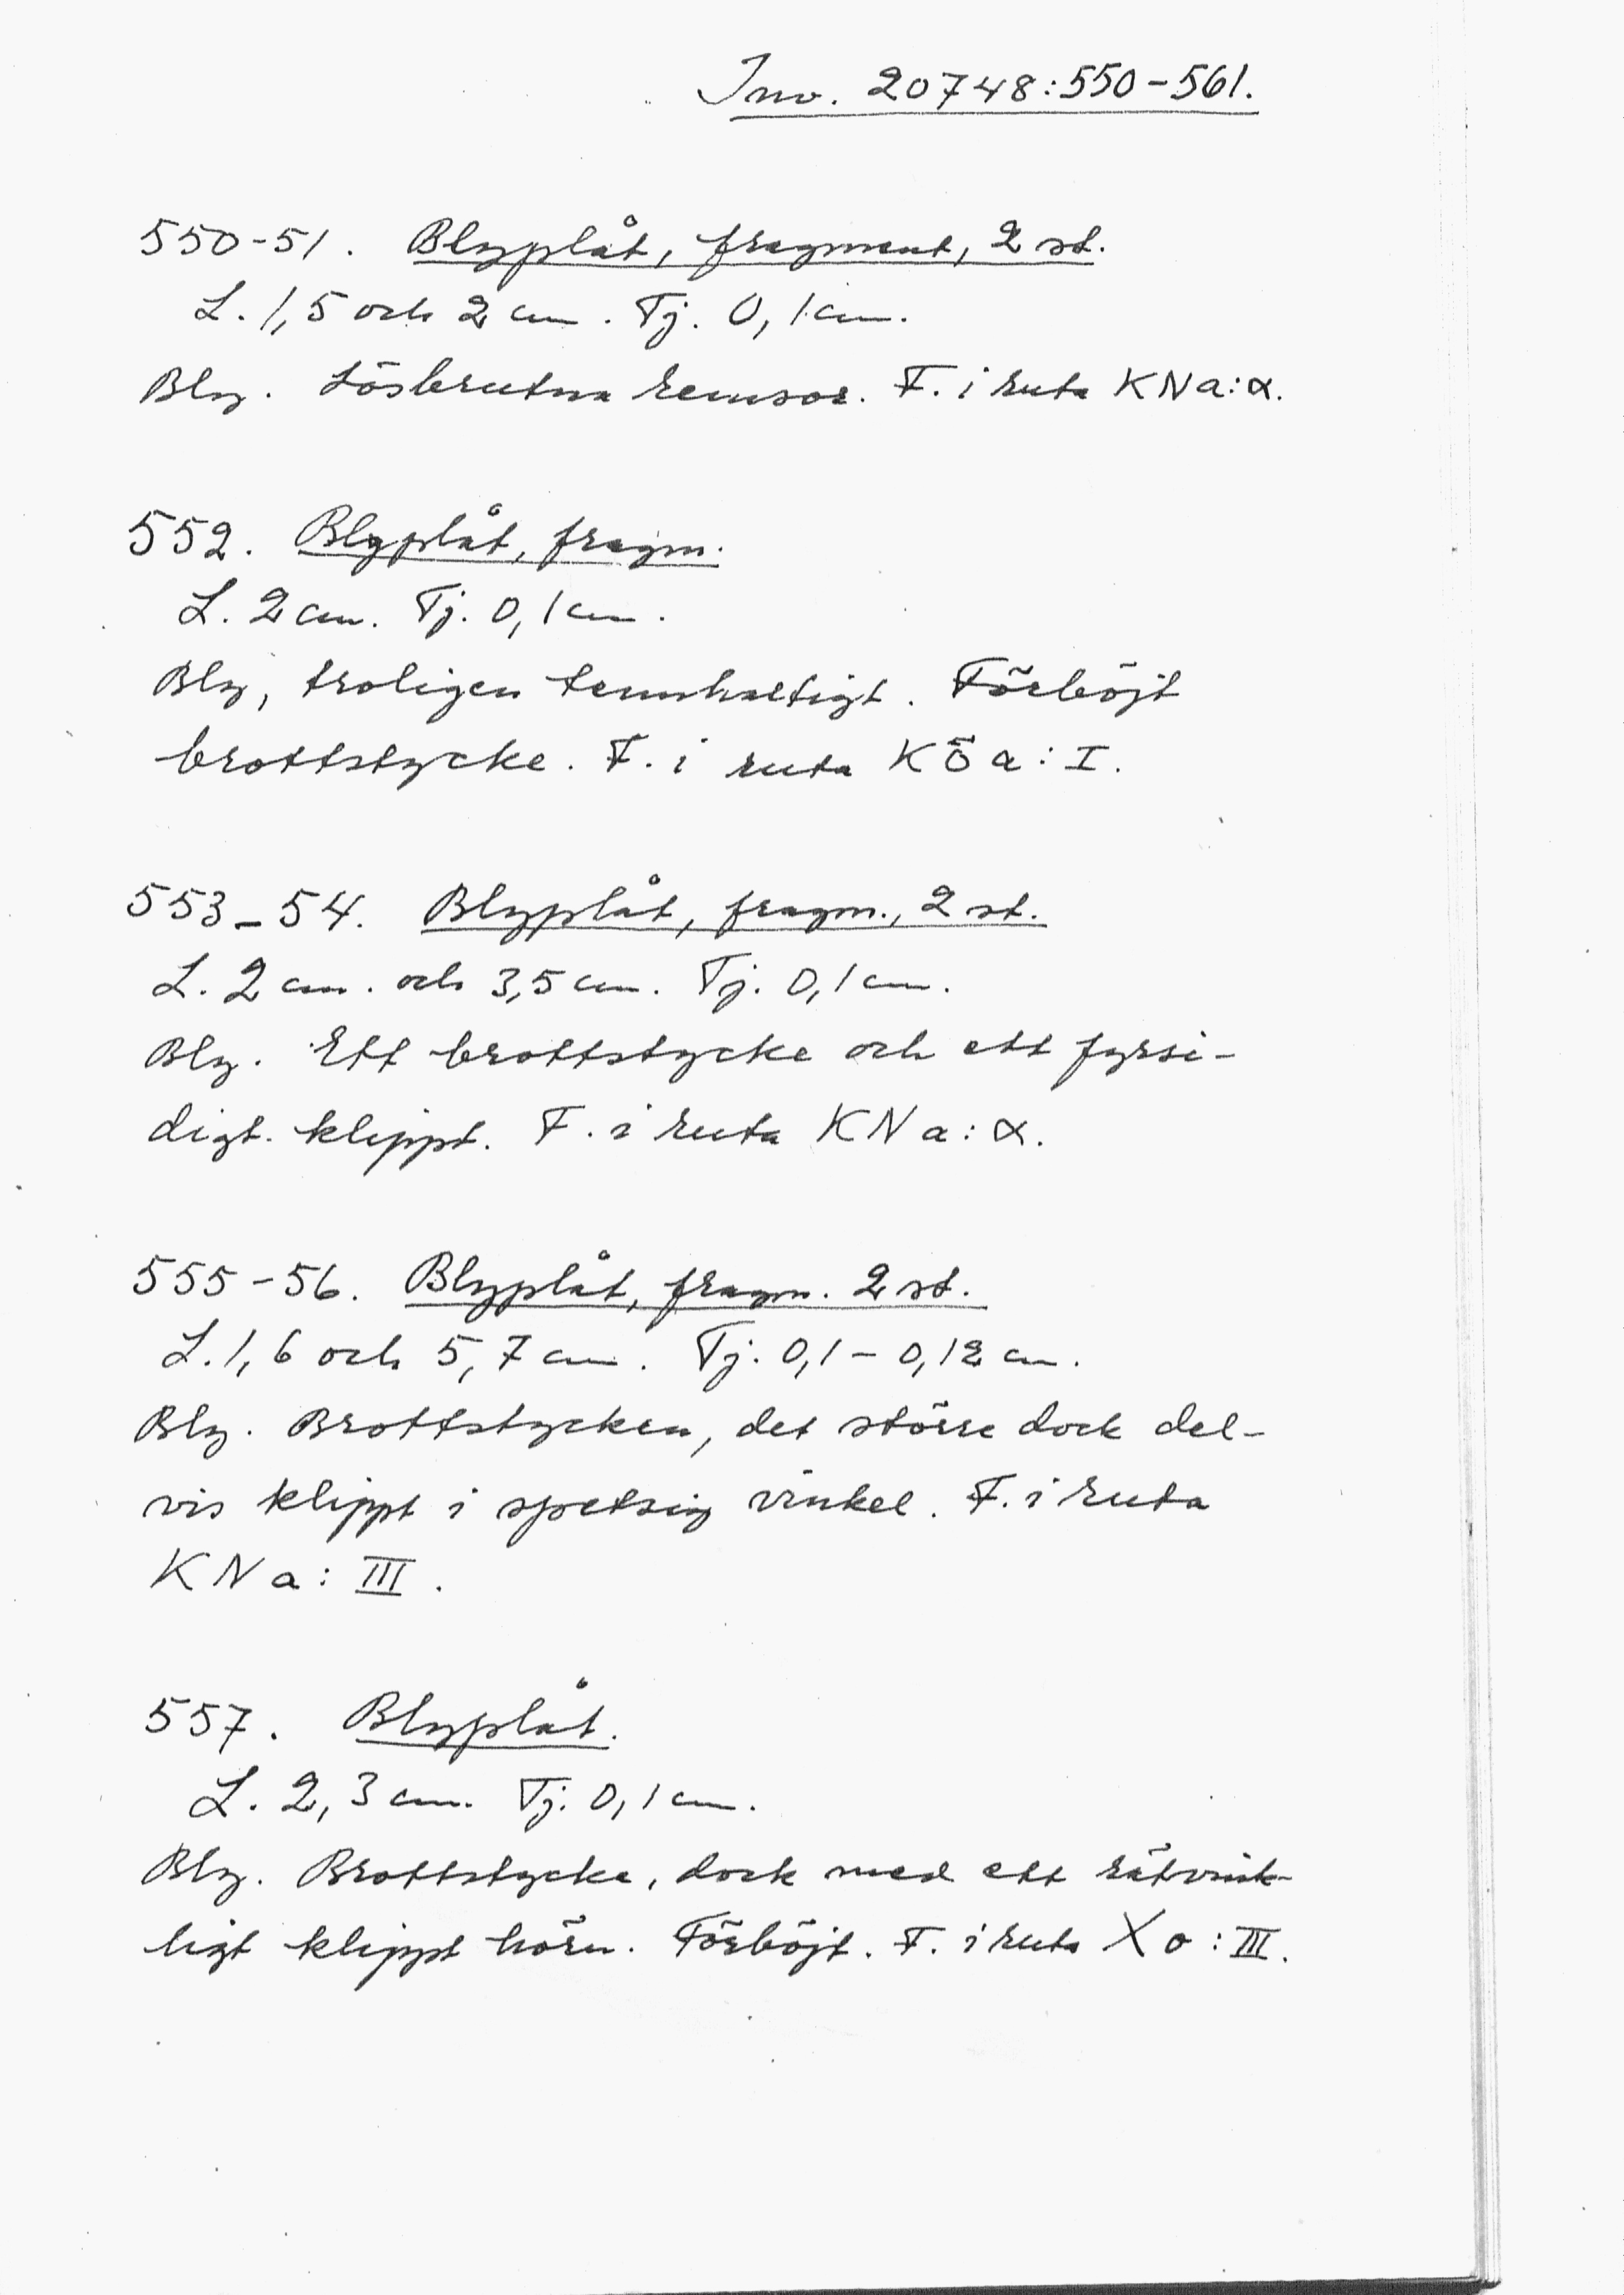 Inv. 20748:550-561.
550-51. Blyplåt, fragment, 2 st.
L. 1,5 och 2 cm. Tj. 0,1 cm.
Bly. Lösbrutna remsor. F. i ruta KNa:α.
552. Blyplåt, fragm.
L. 2 cm. Tj. 0,1 cm.
Bly, troligen tennhaltigt. Förböjt
brottstycke. F. i ruta KÖa: I.
553-54. Blyplåt, fragm., 2 st.
L. 2 cm. och 3,5 cm. Tj. 0,1 cm.
Bly. Ett brottstycke och ett fyrsi-
digt klippt. F. i ruta KNa: α.
555-56. Blyplåt, fragm. 2 st.
L. 1,6 och 5,7 cm. Tj. 0,1 - 0,12 cm.
Bly. Brottstycken, det större dock del-
vis klippt i spetsig vinkel. F. i ruta
KNa: III.
557. Blyplåt.
L. 2,3 cm. Tj. 0,1 cm.
Bly. Brottstycke, dock med ett rätvink-
ligt klippt hörn. Förböjt. F. i ruta Xo: III.